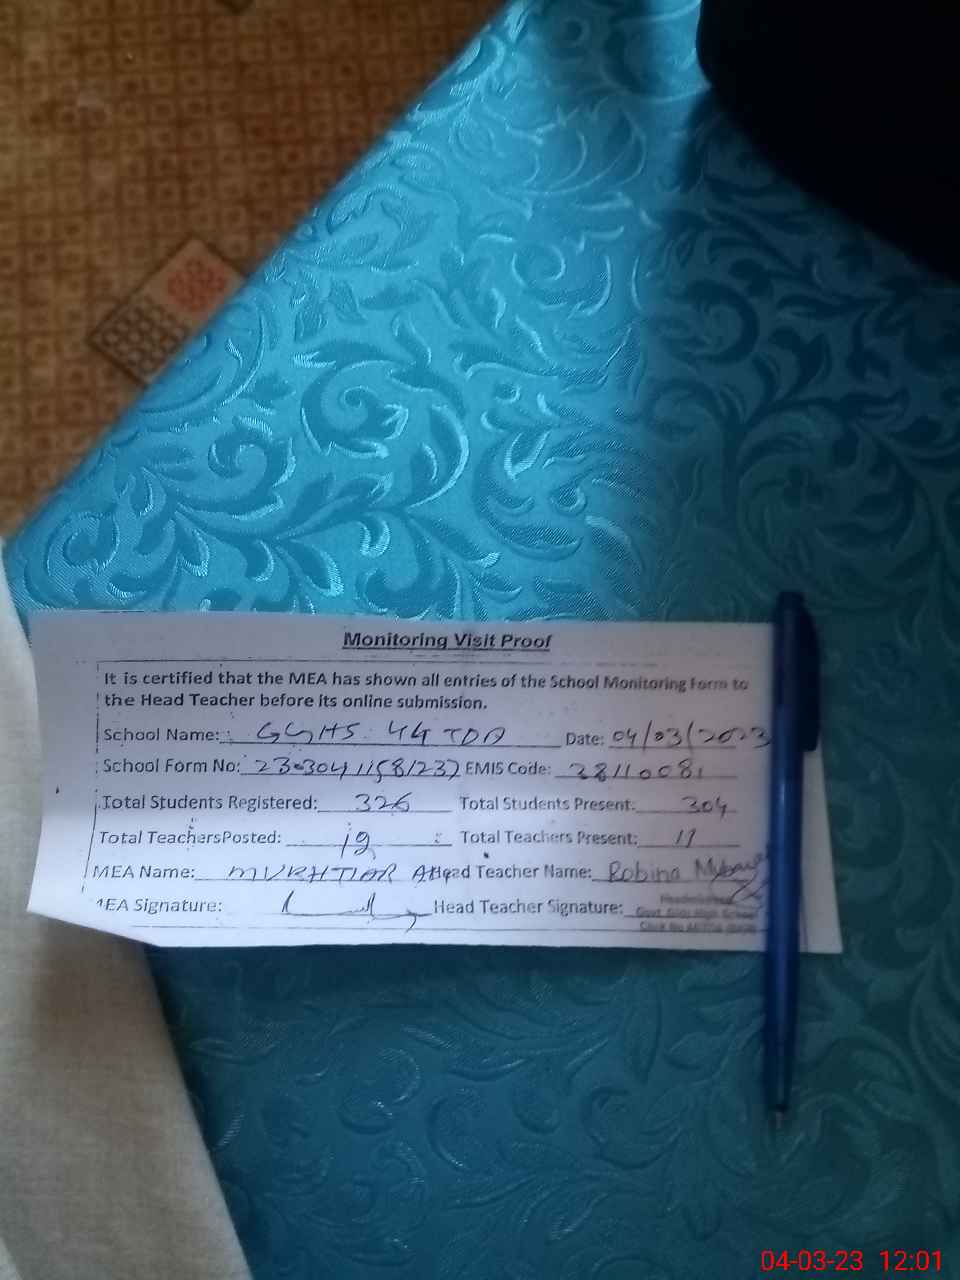 Monitoring Visit Proof
It is certified that the MEA has shown all entries of the School Monitoring Form to
the Head Teacher before its online submission.
School Name: GGHS 44 TDA Date: 04/03/2023
School Form No: EMIS Code: 38110081
Total Students Registered: 326 Total Students Present: 304
Total Teachers Posted: Total Teachers Present: 11
MEA Name: MUKHTIAR Head Teacher Name: Robina
MEA Signature: Head Teacher Signature:
Govt. Girls High School
04-03-23 12:01